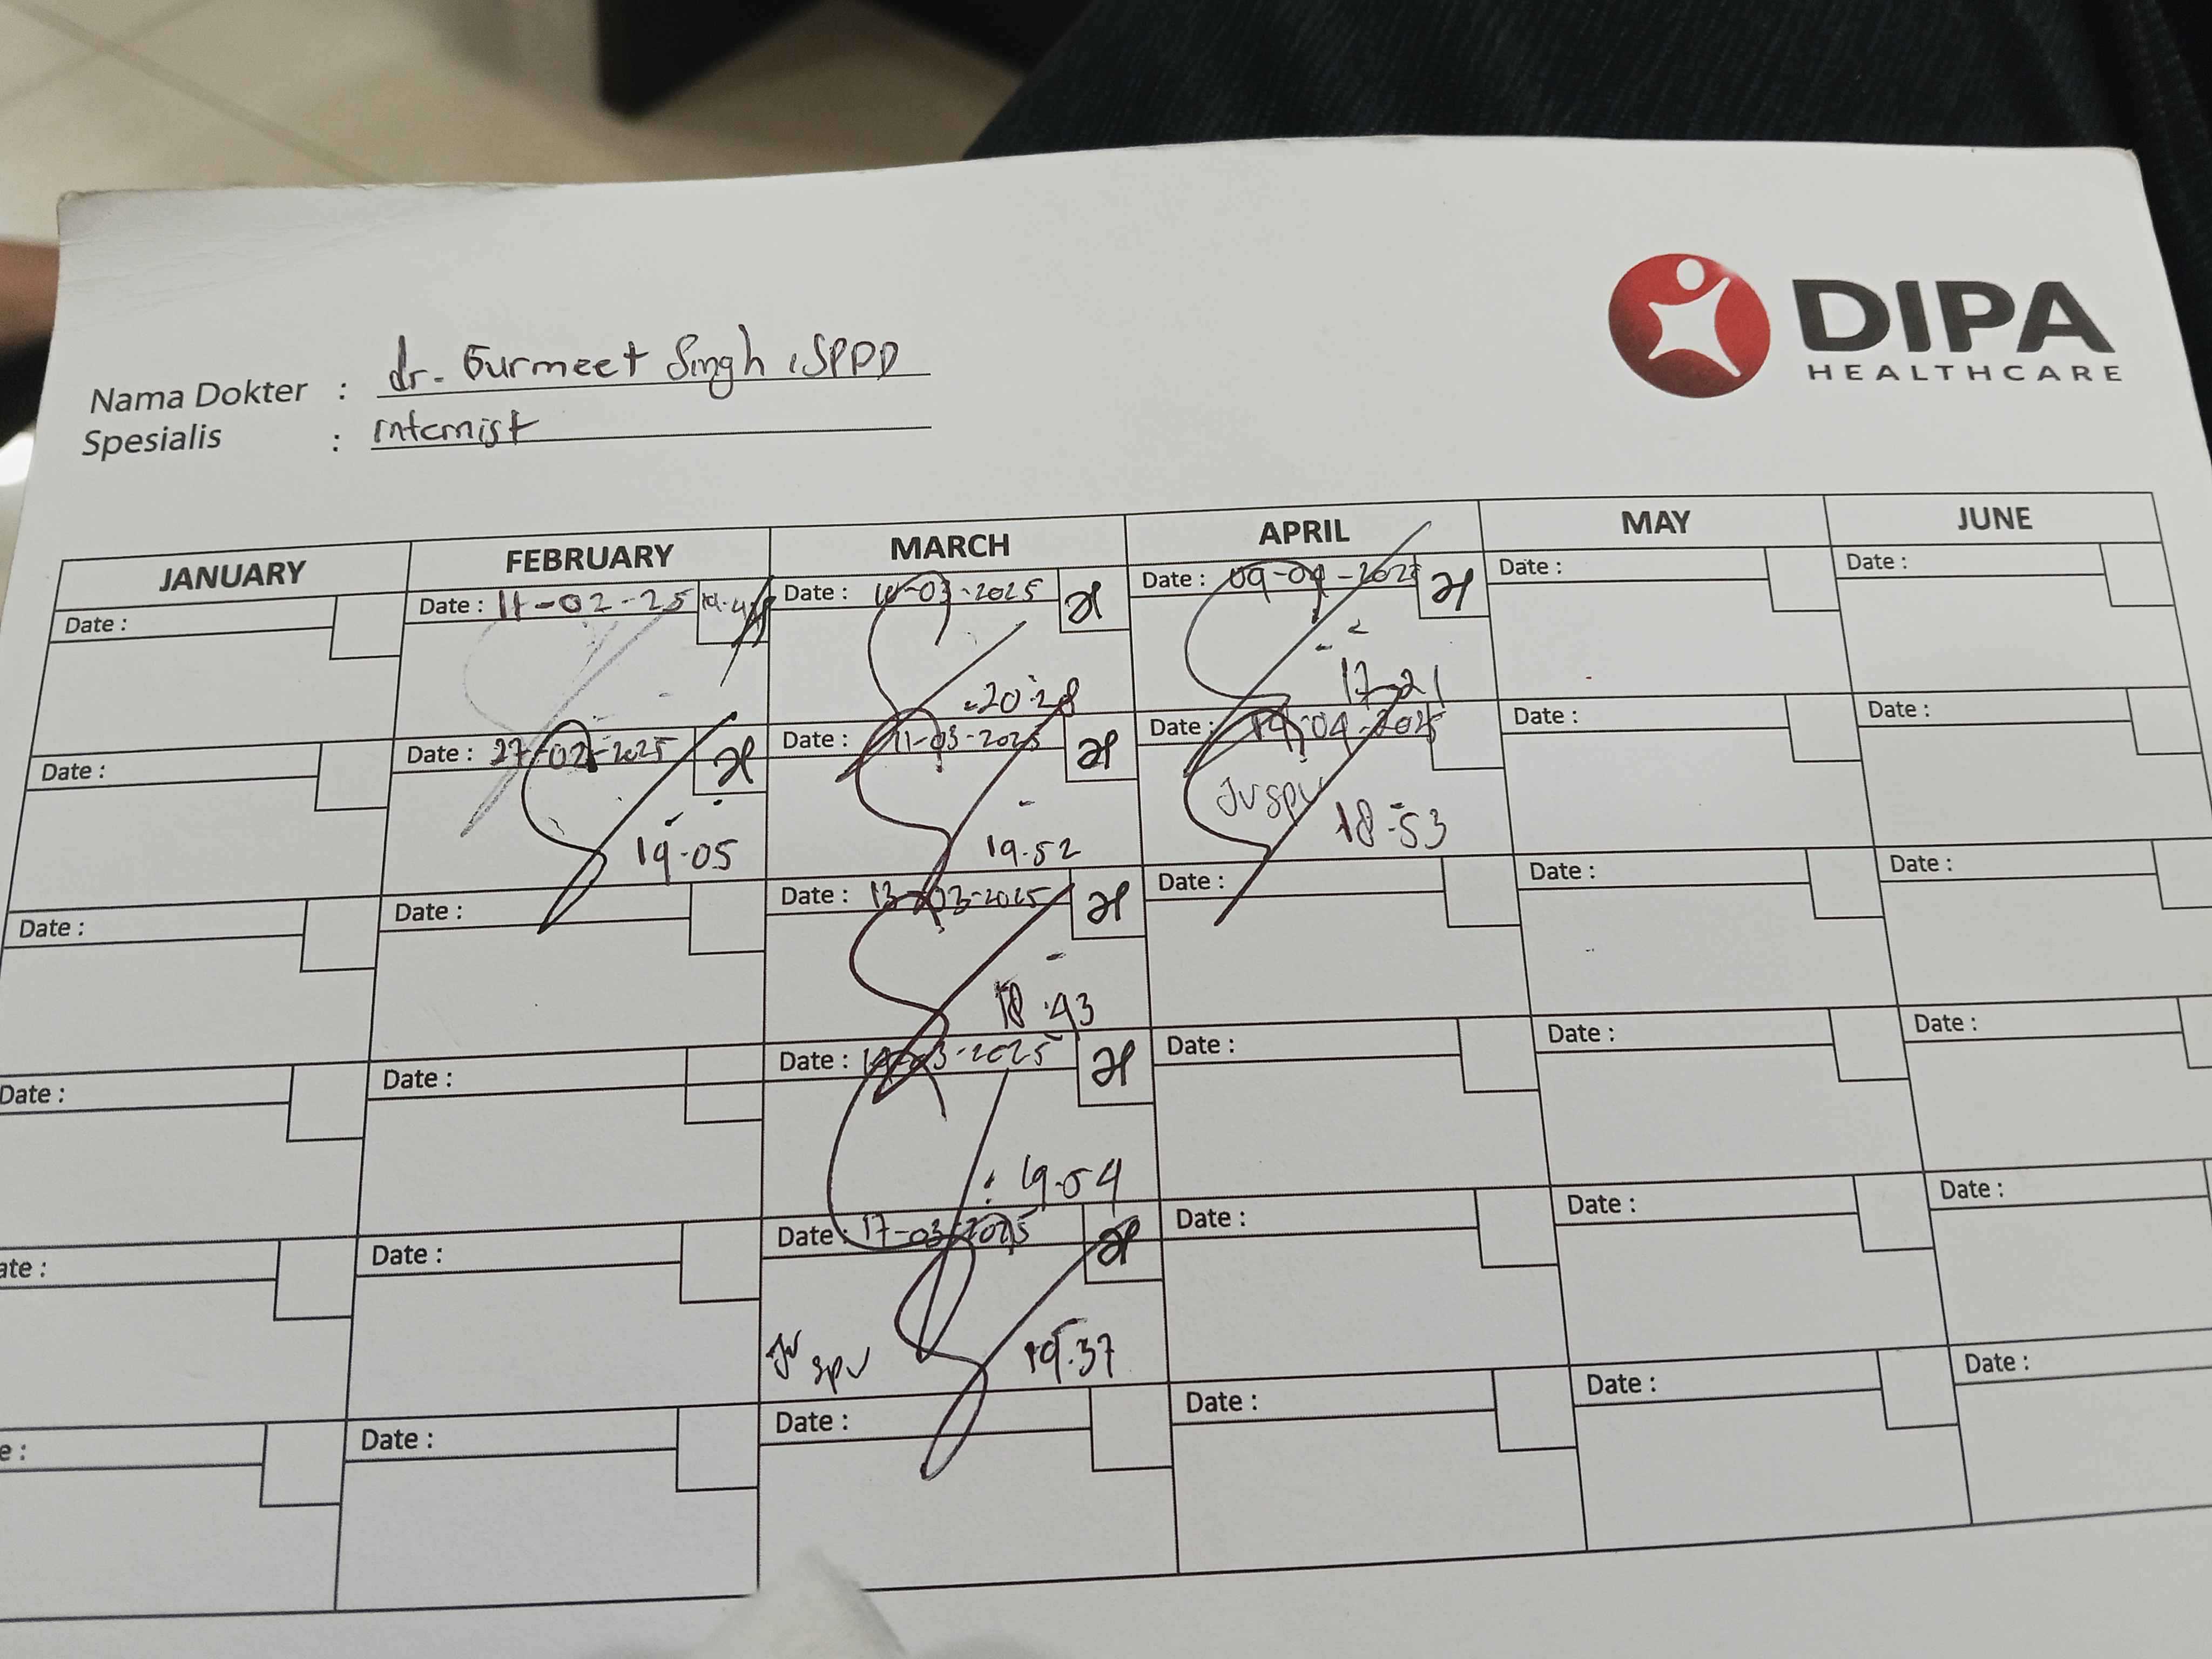 DIPA
HEALTHCARE
Nama Dokter : dr. Gurmeet Singh, SPPD
Spesialis : Internist
JANUARY FEBRUARY MARCH APRIL MAY JUNE
Date : Date : 11-02-25 Date : 10-03-2025 Date : 09-04-2025 Date : Date :
20:28 17-21
Date : Date : 27-02-2025 Date : 11-03-2025 Date : 14-04-2025 Date : Date :
19-05 19.52 Jv spv 18-53
Date : Date : Date : 13-03-2025 Date : Date : Date :
18.43
Date : Date : Date : 14-03-2025 Date : Date : Date :
19.54
ate : Date : Date : 17-03-2025 Date : Date : Date :
Jv spv 19.37
e : Date : Date : Date : Date : Date :